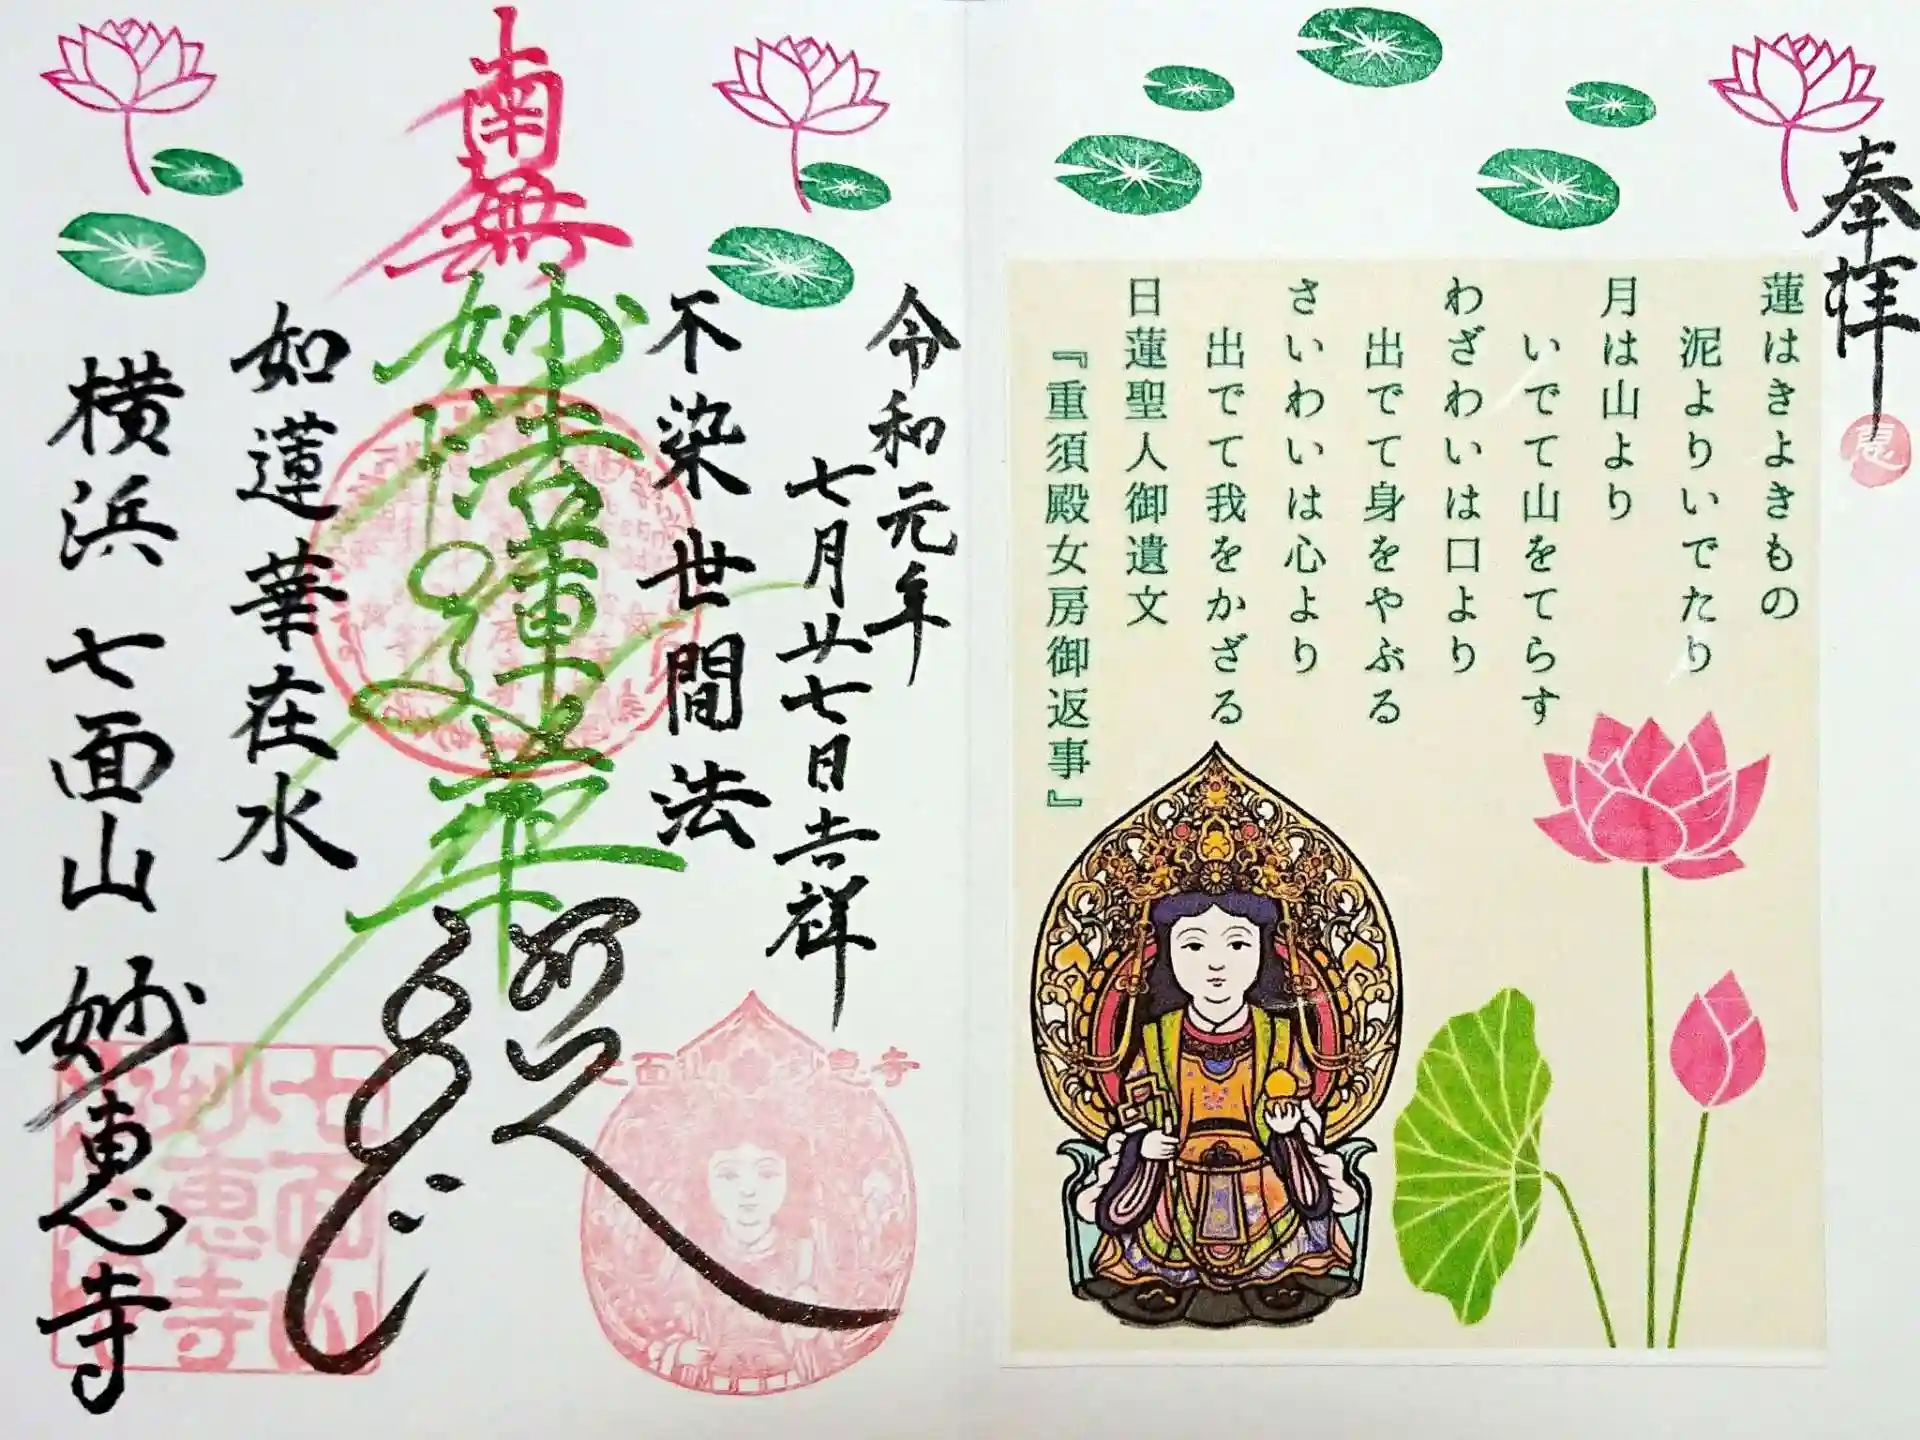 奉拝
恵
蓮はきよきもの
泥よりいでたり
月は山より
いでて山をてらす
わざわいは口より
出でて身をやぶる
さいわいは心より
出でて我をかざる
日蓮聖人御遺文
『重須殿女房御返事』
令和元年
七月廿七日吉祥
不染世間法
南無妙法蓮華経
如蓮華在水
横浜 七面山 妙恵寺
七面山
妙恵寺